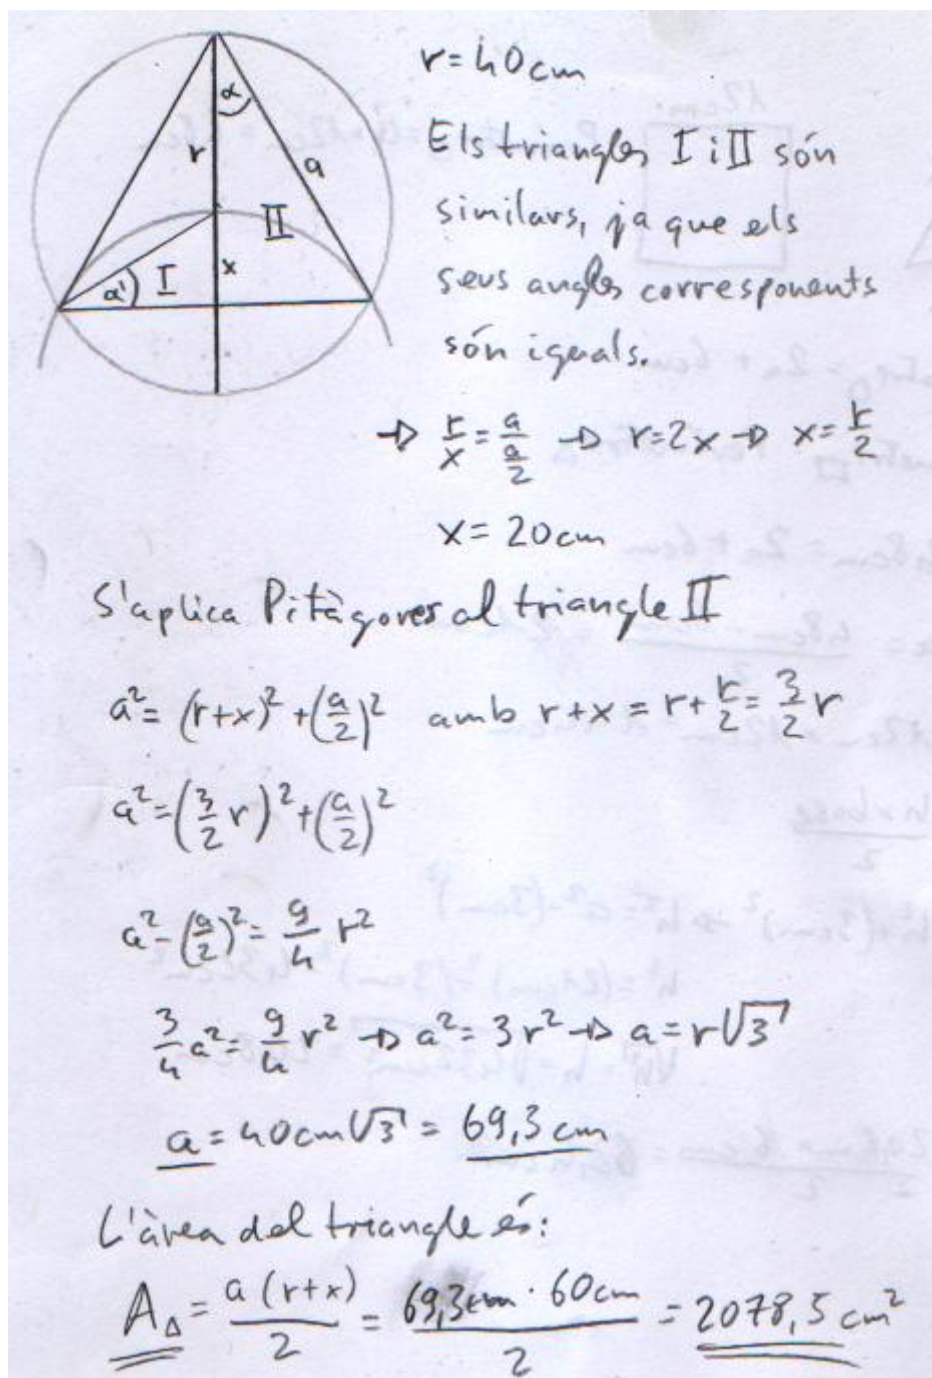 α
r
a
II
x
α' I
r = 40cm
Els triangles I i II són
similars, ja que els
seus angles corresponents
són iguals.
→ r/x = a/(a/2) → r=2x → x = r/2
x = 20cm
S'aplica Pitàgores al triangle II
a² = (r+x)² + (a/2)² amb r+x = r + r/2 = 3/2 r
a² = (3/2 r)² + (a/2)²
a² - (a/2)² = 9/4 r²
3/4 a² = 9/4 r² → a² = 3r² → a = r√3
a = 40cm√3 = 69,3 cm
L'àrea del triangle és:
A△ = a (r+x)/2 = 69,3cm · 60cm/2 = 2078,5 cm²